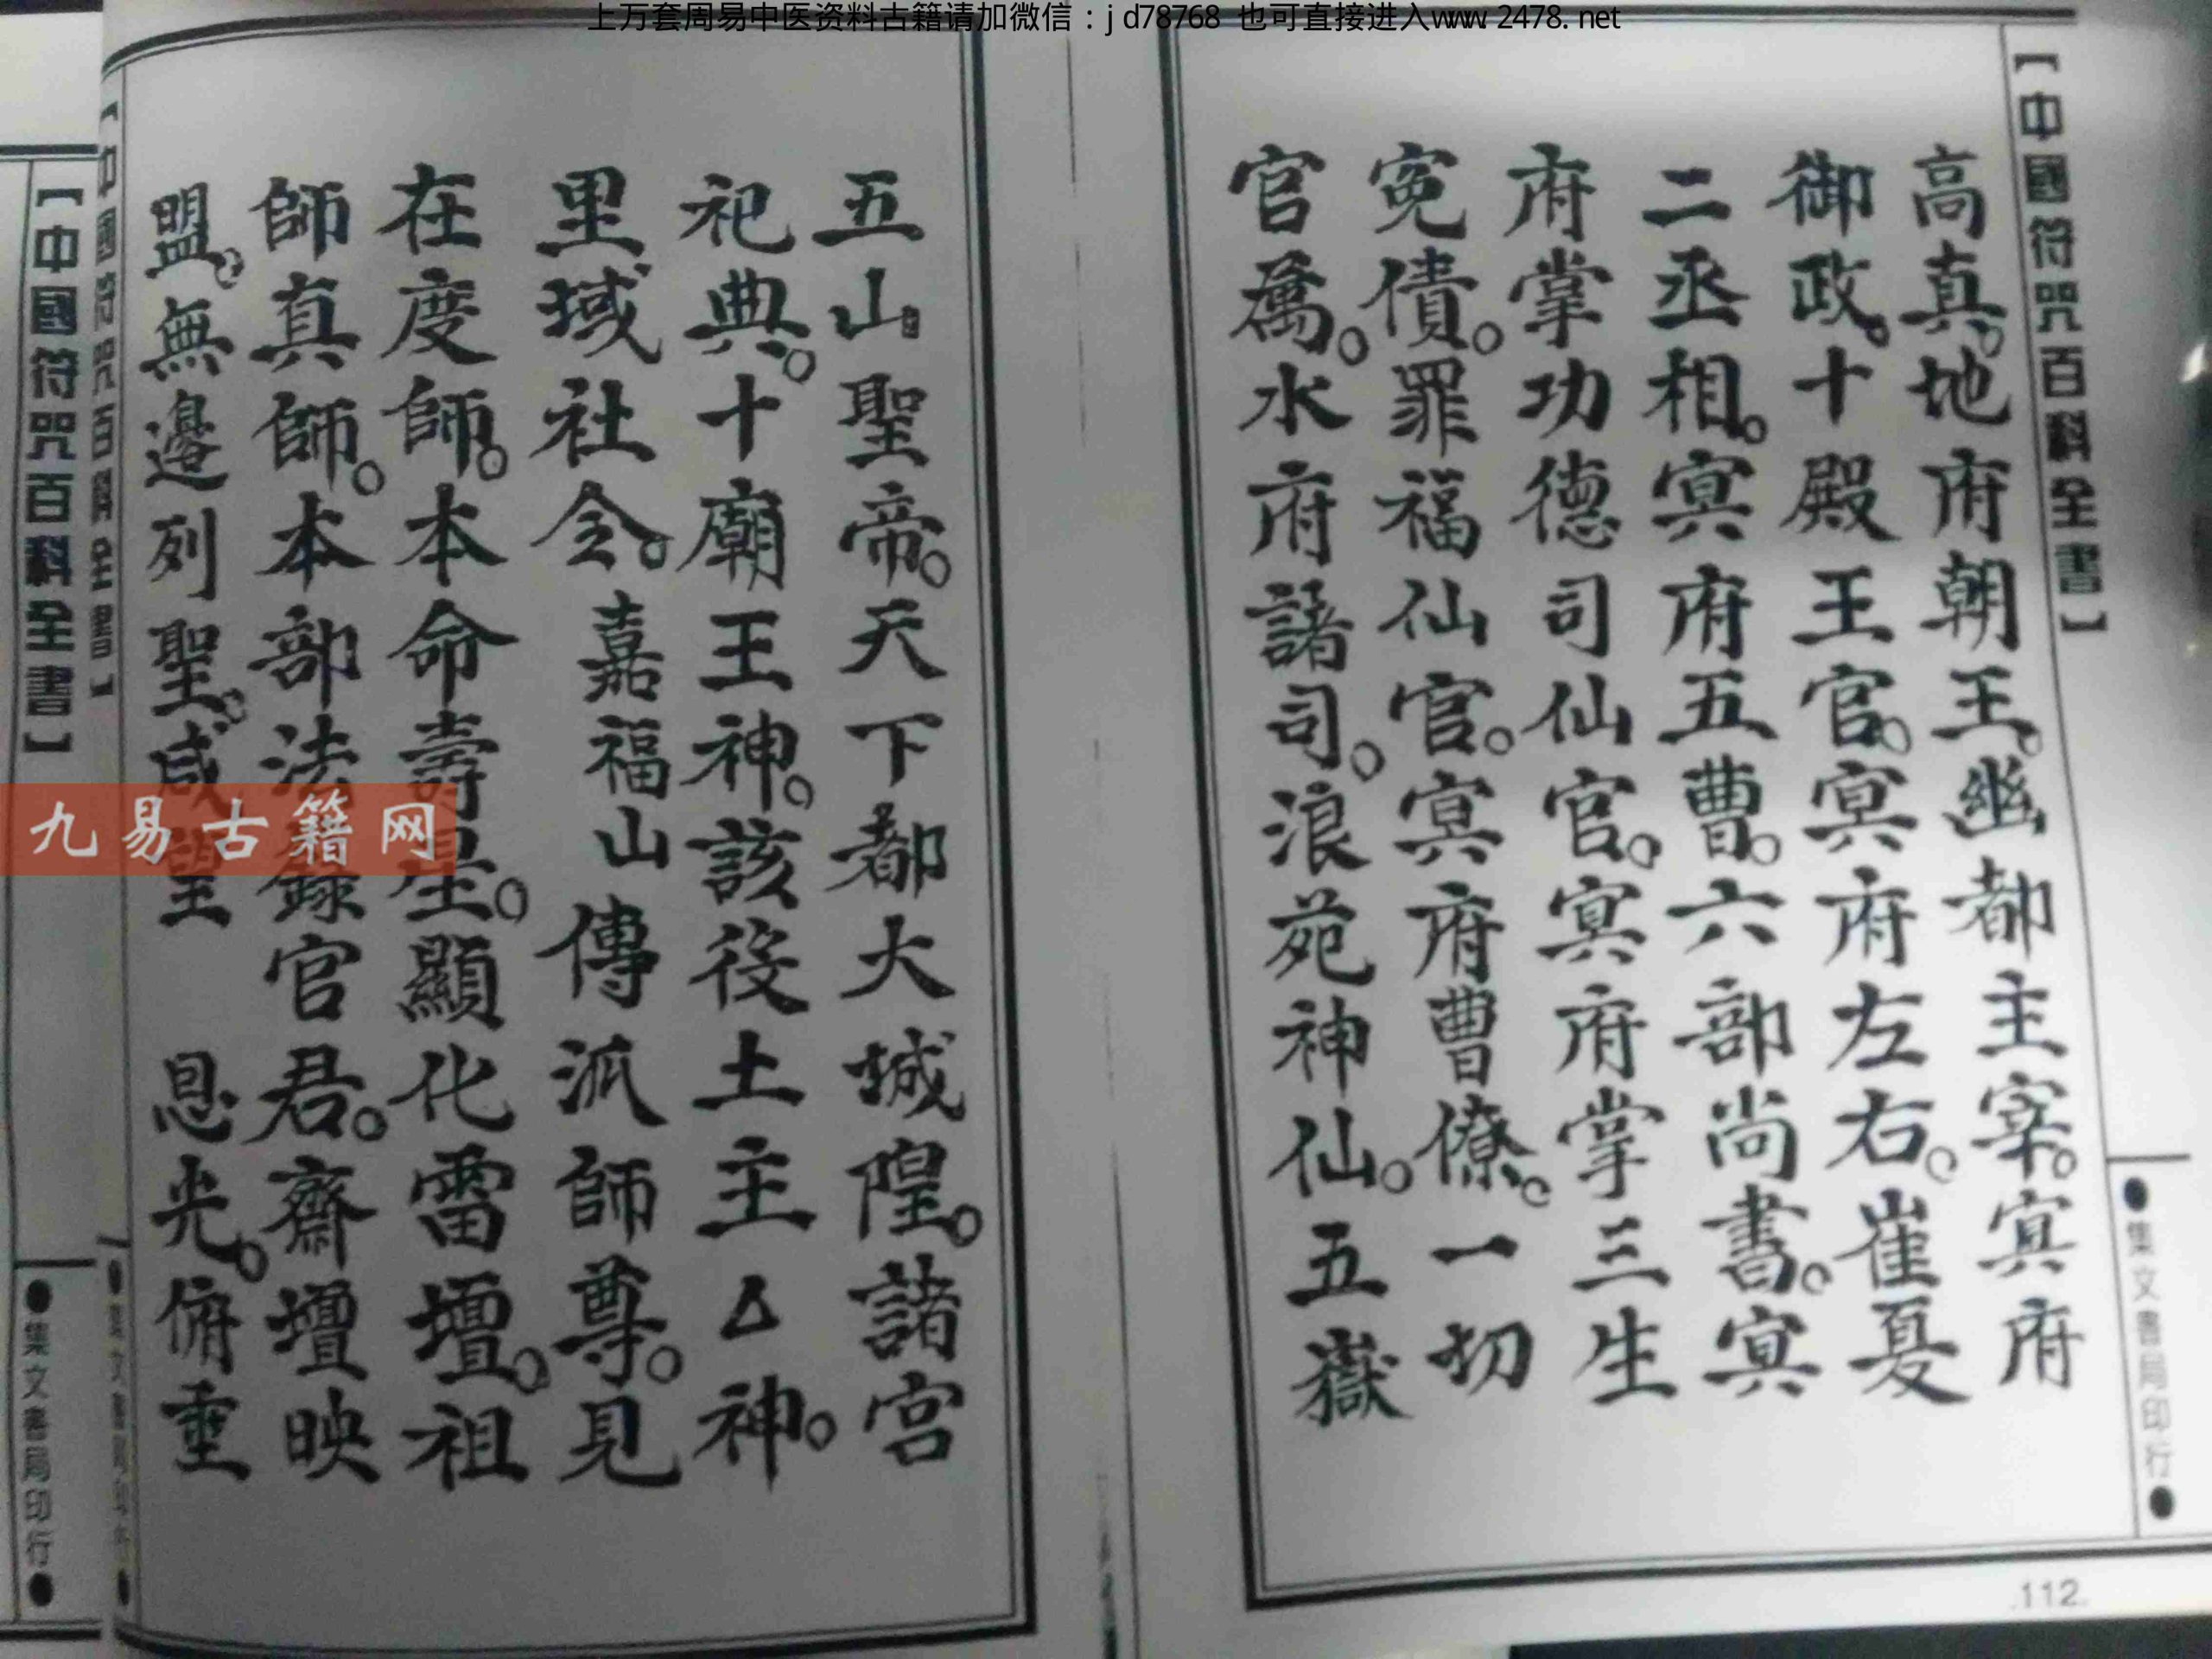 上万套周易中医资料古籍请加微信：jd78768 也可直接进入www.2478.net
【中國符咒百科全書】
●集文書局印行●
高真。地府朝王。幽都主宰。冥府
御政。十殿王官。冥府左右。崔夏
二丞相。冥府五曹。六部尚書。冥
府掌功德司仙官。冥府掌三生
冤債。罪福仙官。冥府曹僚。一切
官属。水府諸司。浪苑神仙。五嶽
.112.
五山聖帝。天下都大城隍。諸宮
祀典。十廟王神。該役土主厶神。
里域社令。嘉福山傳派師尊。見
在度師。本命壽星。顯化雷壇。祖
師真師。本部法錄官君。齋壇映
盟。無邊列聖。咸望 恩光。俯垂
【中國符咒百科全書】
九易古籍网
【中國符咒百科全書】
●集文書局印行●